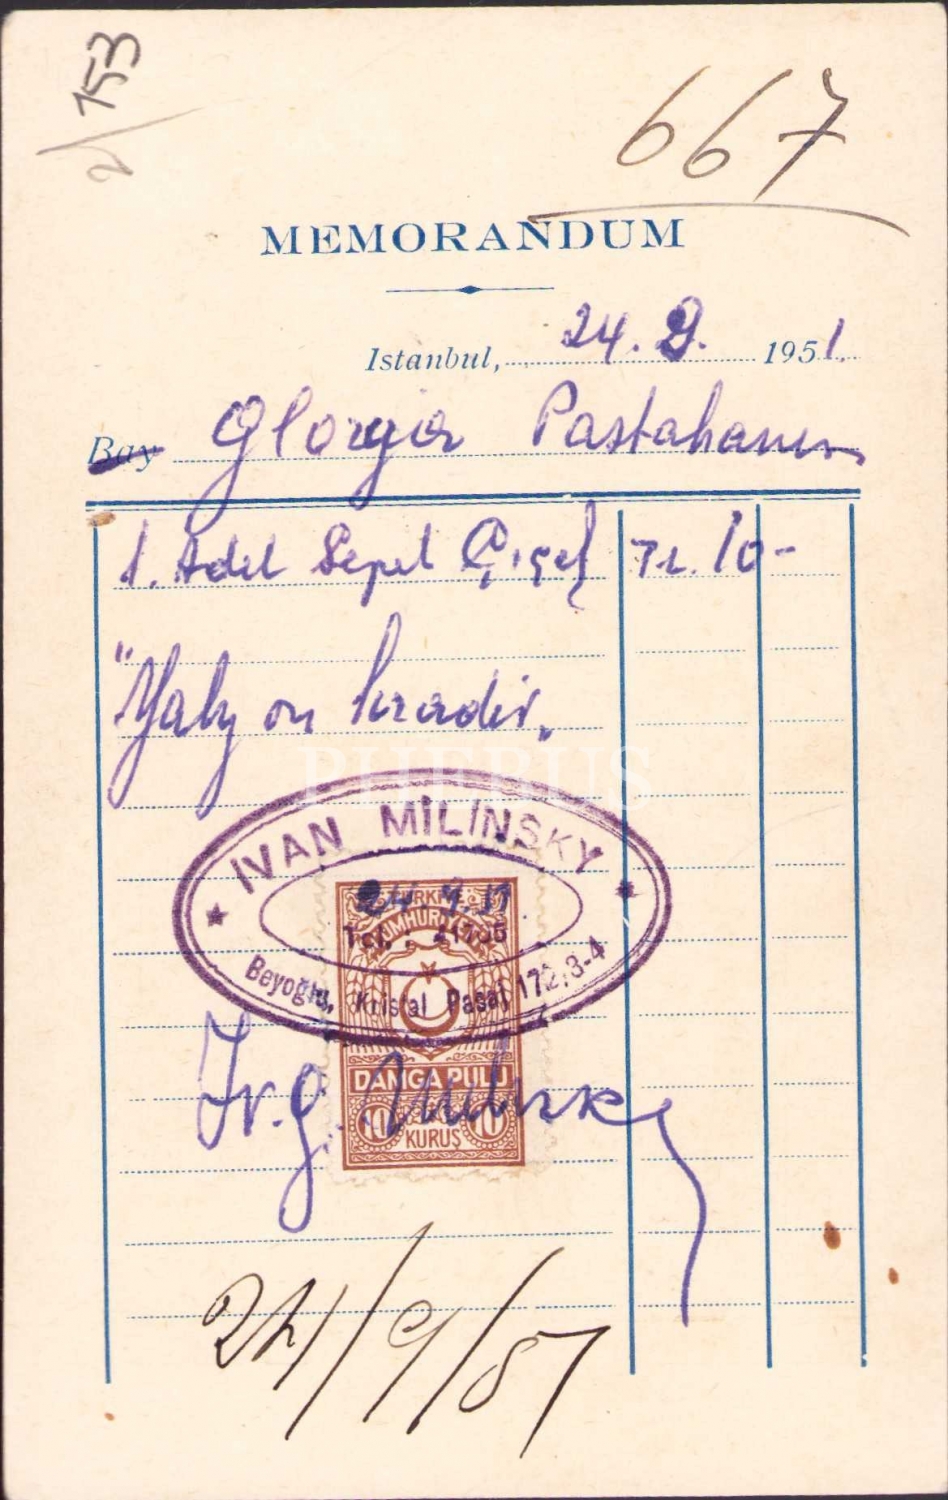 2/153
667
MEMORANDUM
Istanbul, 24.9. 1951.
Bay Glorya Pastahanesi
1. Adet Sepet Çiçek TL. 10-
"Yalnız on liradır."
PHEBUS
IVAN MİLİNSKY
24.9.51
TÜRKİYE
CUMHURİYETİ
Tel.:
Beyoğlu, Kristal Pasaj 172, 3-4
DAMGA PULU
10 10
KURUŞ
24/9/51